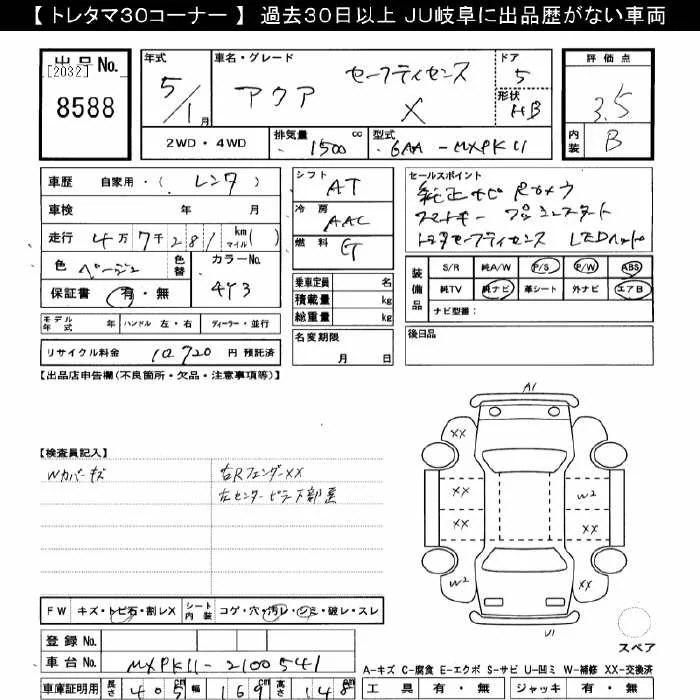 【 トレタマ30コーナー 】 過去30日以上 JU岐阜に出品歴がない車両
出品No.
[2032]
8588
年式
5/1月
車名・グレード
セーフティセンス
アクア X
ドア
5
形状
HB
評価点
3.5
内装
B
2WD・4WD
排気量 1500 cc
型式 6AA-MXPK11
車歴 自家用・( レンタ )
車検 年 月
走行 4万7千281 km マイル ( )
色 ベージュ 色替
カラーNo.
4Y3
保証書 有・無
シフト AT
冷房 AAC
燃料 G
乗車定員 名
積載量 kg
総重量 kg
セールスポイント
純正ナビ Rカメラ
スマートキー プッシュスタート
トヨタセーフティセンス LEDヘッド
装備品
S/R 純A/W P/S P/W ABS
純TV 純ナビ 革シート 外ナビ エアB
ナビ型番:
モデル年式 年 ハンドル 左・右 ディーラー・並行
リサイクル料金 10720 円 預託済
名変期限
月 日
後日品
【出品店申告欄(不良箇所・欠品・注意事項等)】
【検査員記入】
Wカバーキズ
右Rフェンダーxx
左センターピラー下部
A1
XX
XX
XX
W2
W2
XX
XX
U1
スペア
FW キズ・トビ石・割レX
シート内装 コゲ・穴・汚レ・シミ・破レ・スレ
登録No.
車台No. MXPK11-2100541
車庫証明用 長さ 405 cm 幅 169 cm 高さ 148 cm
A-キズ C-腐食 E-エクボ S-サビ U-凹ミ W-補修 XX-交換済
工具 有・無 ジャッキ 有・無